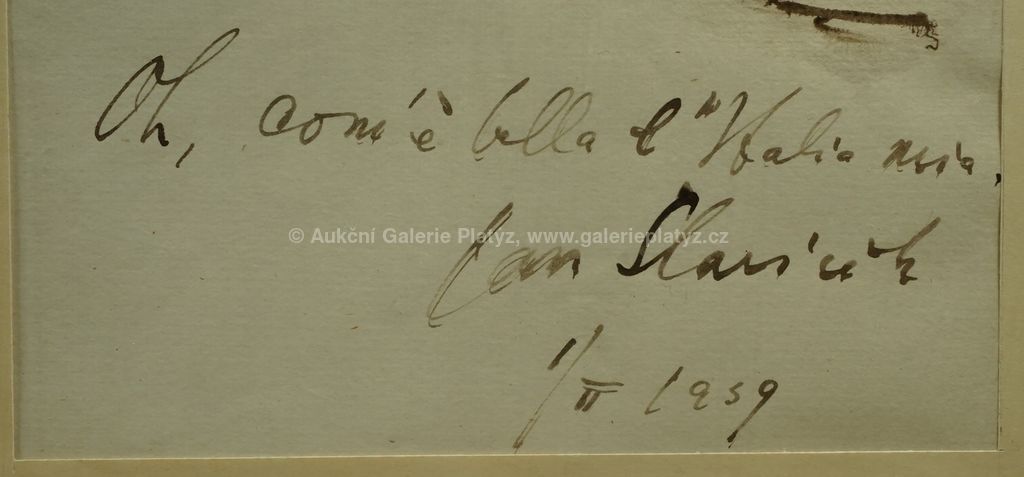 Oh, com'è bella l'Italia mia.
© Aukční Galerie Platýz, www.galerieplatyz.cz
Jan Slavíček
1/II 1959